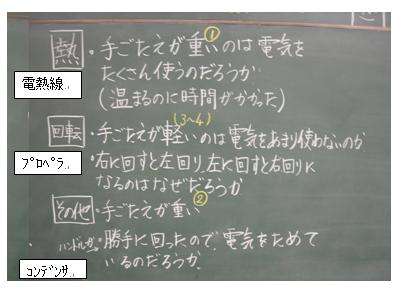 熱 ・手ごたえが重い①のは電気を
たくさん使うのだろうか
電熱線
(温まるのに時間がかかった)
(3~4)
回転 ・手ごたえが軽いのは電気をあまり使わないのか
プロペラ
・右に回すと左回り、左に回すと右回りに
なるのはなぜだろうか
その他 ・手ごたえが重い②
ハンドルが・勝手に回ったので、電気をためて
いるのだろうか
コンデンサ